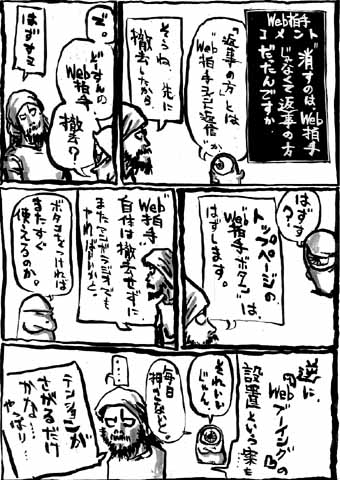 Web拍手
コメント
"消すのは、Web
拍手
じゃなくて返事の方
だったんですか
「返事の方」とは
"Web拍手コメント返信"か
そうね、先に
撤去したから。
で。
どーすんの
Web
拍手
撤去?
はずサミ
はずす
?
トップページの
"Web拍手ボタン"は、
はずします。
Web
拍手
自体は撤去せずに
また
やれば良いかと。
ボタンさえつければ
またすぐ
使えるのか。
逆に、
Webブーイングの
設置という案も
それいい
じゃん。
毎日
押さないと
……
テンションが
さがるだけ
かな…
やっぱり…